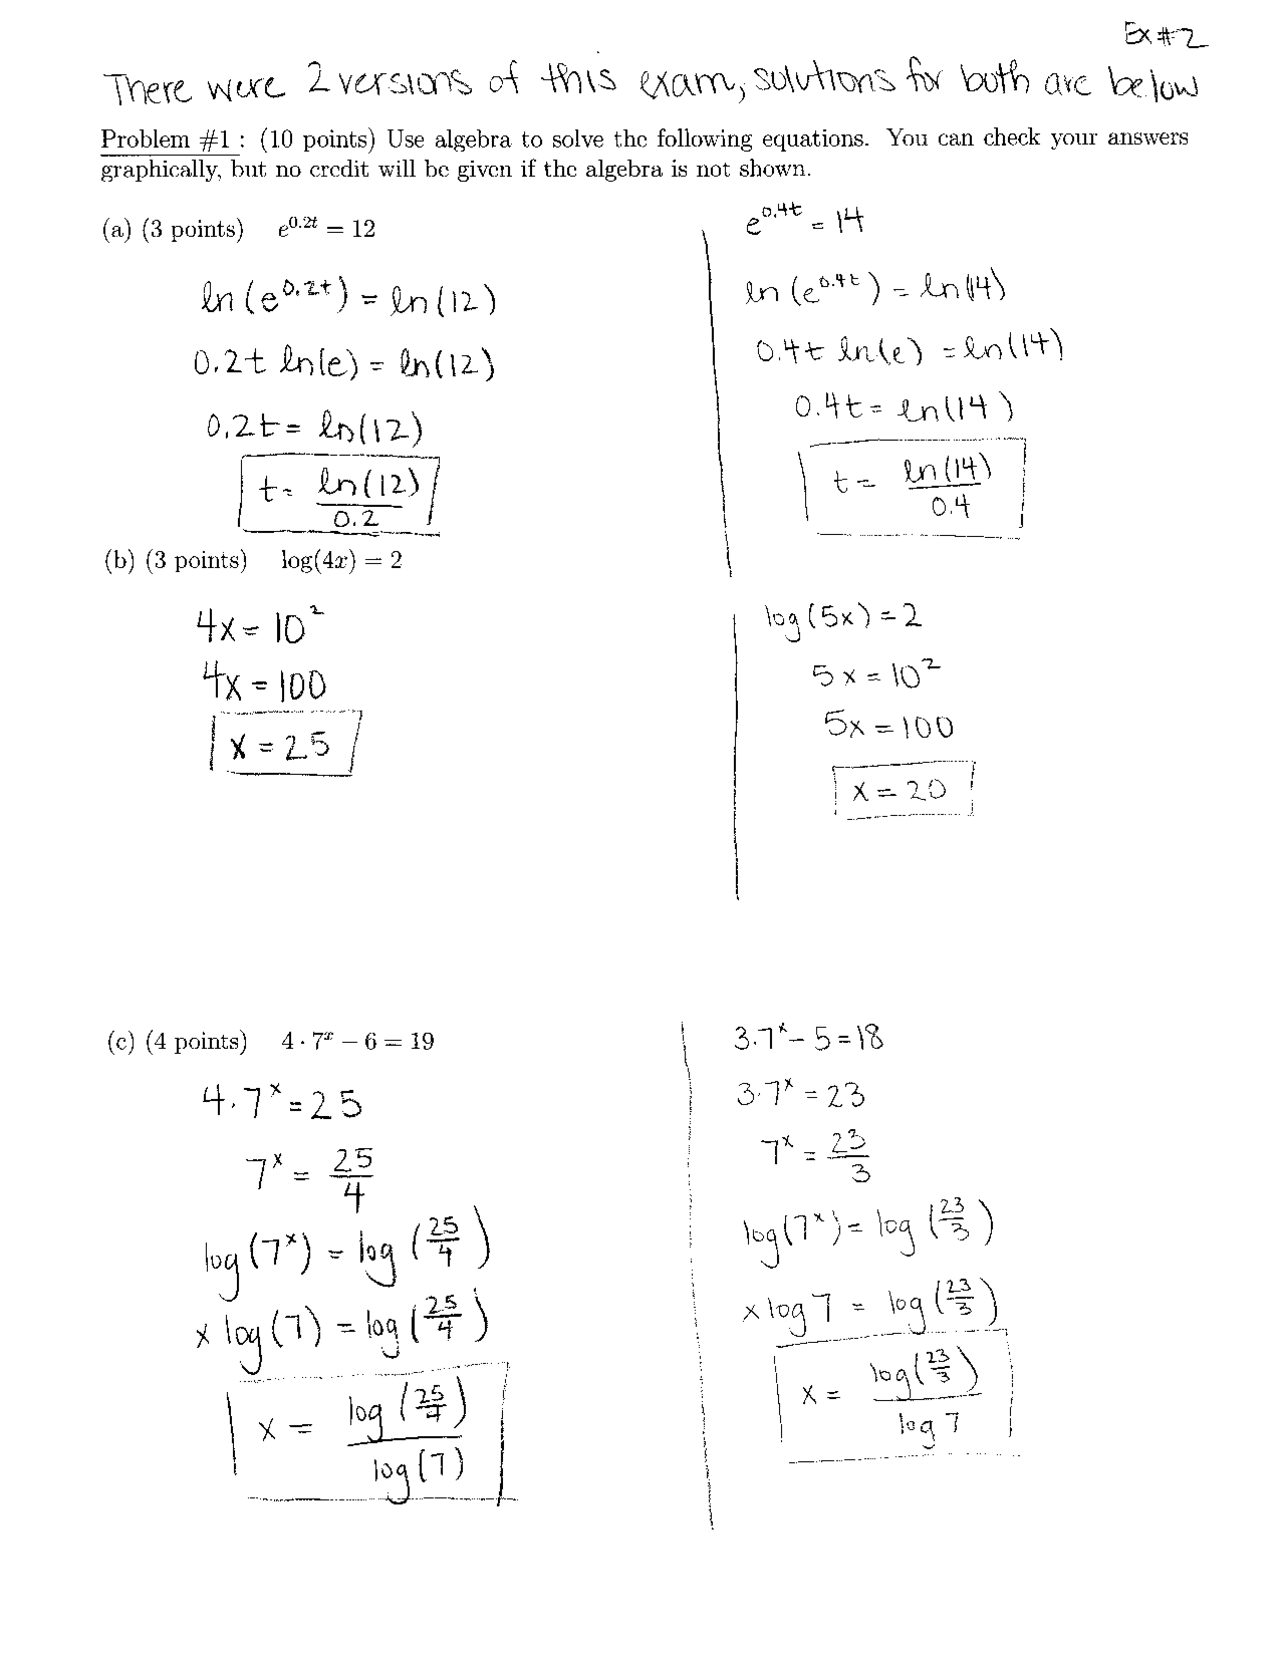 Ex #2
There were 2 versions of this exam, solutions for both are below
Problem #1 : (10 points) Use algebra to solve the following equations. You can check your answers
graphically, but no credit will be given if the algebra is not shown.
(a) (3 points) e^{0.2t} = 12
ln(e^{0.2t}) = ln(12)
0.2t ln(e) = ln(12)
0.2t = ln(12)
t = ln(12)/0.2
e^{0.4t} = 14
ln(e^{0.4t}) = ln(14)
0.4t ln(e) = ln(14)
0.4t = ln(14)
t = ln(14)/0.4
(b) (3 points) log(4x) = 2
4x = 10²
4x = 100
x = 25
log(5x) = 2
5x = 10²
5x = 100
x = 20
(c) (4 points) 4 · 7^x − 6 = 19
4 · 7^x = 25
7^x = 25/4
log(7^x) = log(25/4)
x log(7) = log(25/4)
x = log(25/4)/log(7)
3·7^x − 5 = 18
3·7^x = 23
7^x = 23/3
log(7^x) = log(23/3)
x log 7 = log(23/3)
x = log(23/3)/log 7